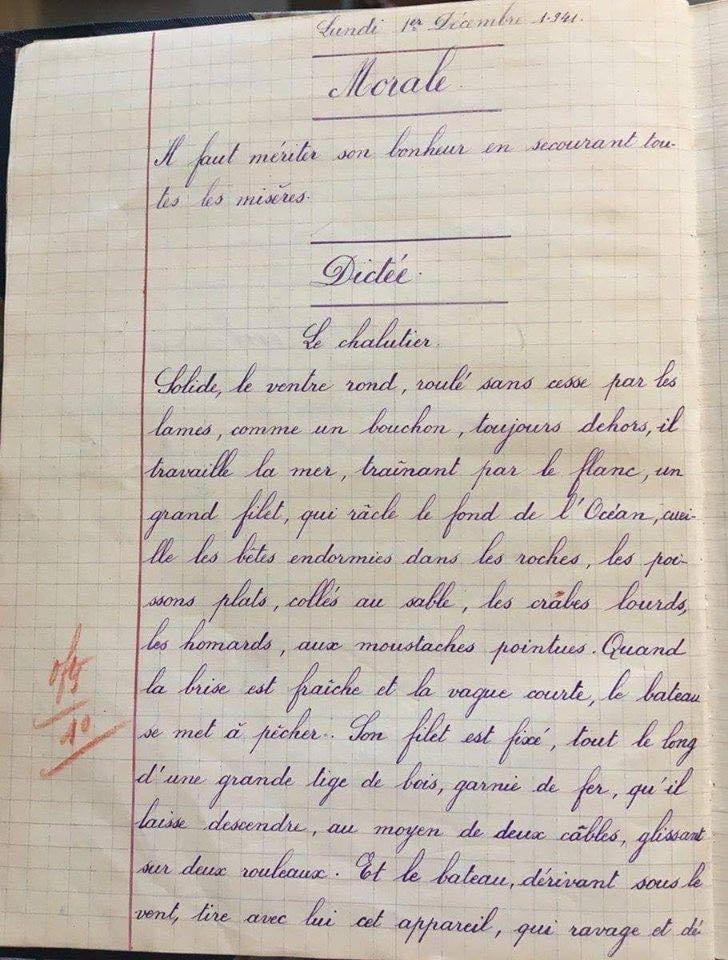 Lundi 1er Décembre 1941.
Morale.
Il faut mériter son bonheur en secourant tou-
tes les misères.
Dictée.
Le chalutier.
Solide, le ventre rond, roulé sans cesse par les
lames, comme un bouchon, toujours dehors, il
travaille la mer, traînant par le flanc, un
grand filet, qui râcle le fond de l'Océan, cuei-
lle les bêtes endormies dans les roches, les poi-
ssons plats, collés au sable, les crabes lourds,
les homards, aux moustaches pointues. Quand
la brise est fraîche et la vague courte, le bateau
se met à pêcher.. Son filet est fixé, tout le long
d'une grande tige de bois, garnie de fer, qu'il
laisse descendre, au moyen de deux câbles, glissant
sur deux rouleaux. Et le bateau, dérivant sous le
vent, tire avec lui cet appareil, qui ravage et dé
10